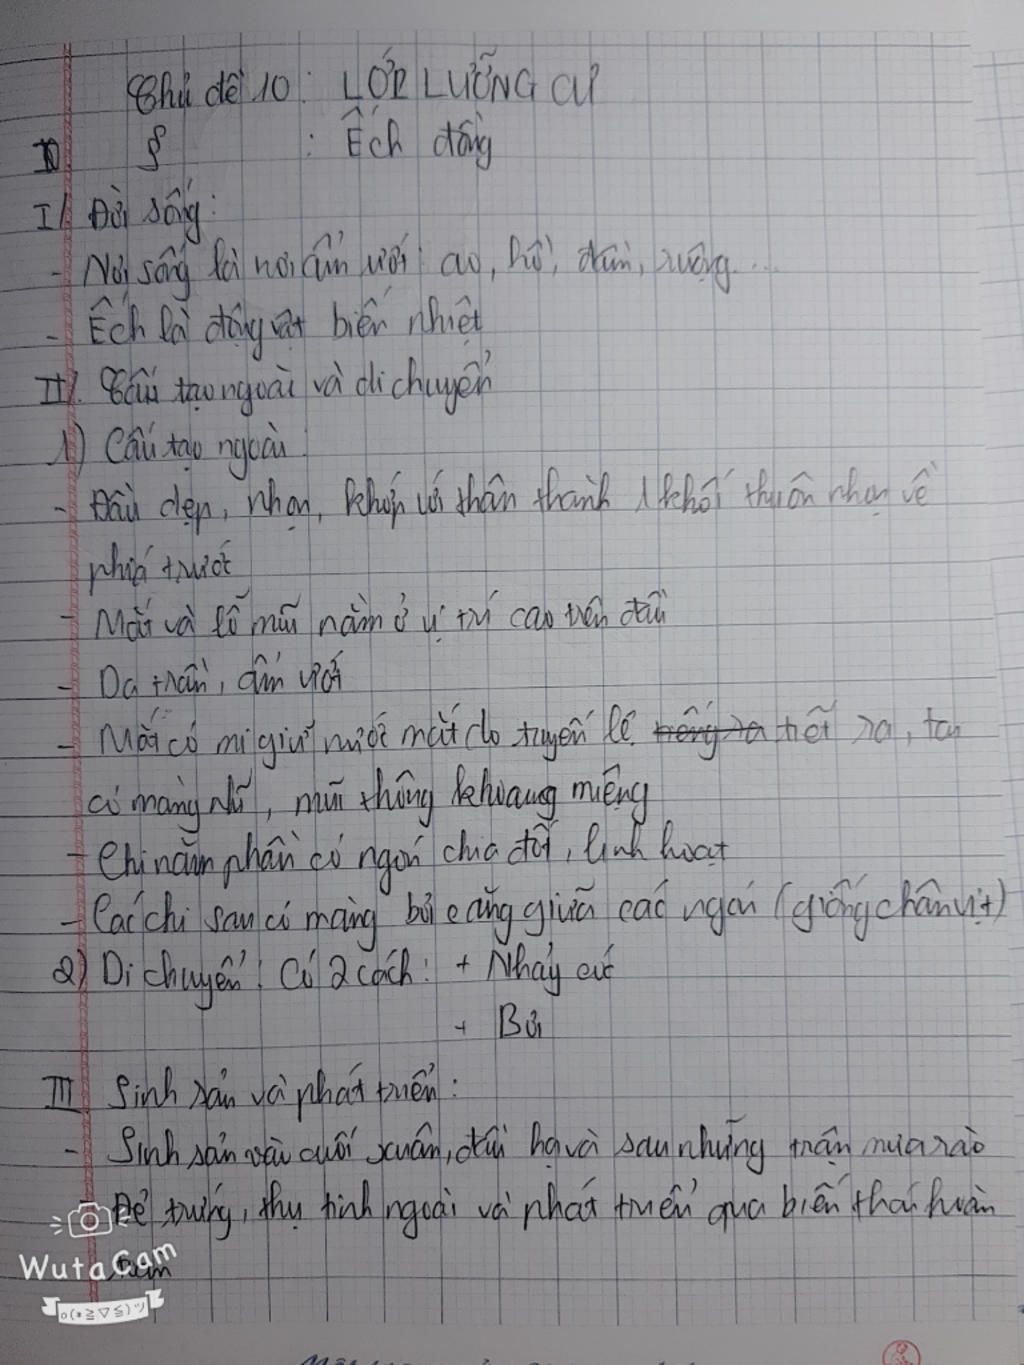 Chủ đề 10: LỚP LƯỠNG CƯ
: Ếch đồng
I/ Đời sống:
- Nơi sống là nơi ẩm ướt: ao, hồ, đầm, ruộng...
- Ếch là động vật biến nhiệt
II/. Cấu tạo ngoài và di chuyển
1) Cấu tạo ngoài:
- Đầu dẹp, nhọn, khớp với thân thành 1 khối thuôn nhọn về
phía trước
- Mắt và lỗ mũi nằm ở vị trí cao trên đầu
- Da trần, ẩm ướt
- Mắt có mi giữ nước mắt do tuyến lệ tiết ra, tai
có màng nhĩ, mũi thông khoang miệng
- Chi năm phần có ngón chia đốt, linh hoạt
- Các chi sau có màng bơi căng giữa các ngón (giống chân vịt)
2) Di chuyển: Có 2 cách: + Nhảy cóc
+ Bơi
III Sinh sản và phát triển:
- Sinh sản vào cuối xuân, đầu hạ và sau những trận mưa rào
Đẻ trứng, thụ tinh ngoài và phát triển qua biến thái hoàn
WutaCam
o(*≧▽≦)ツ